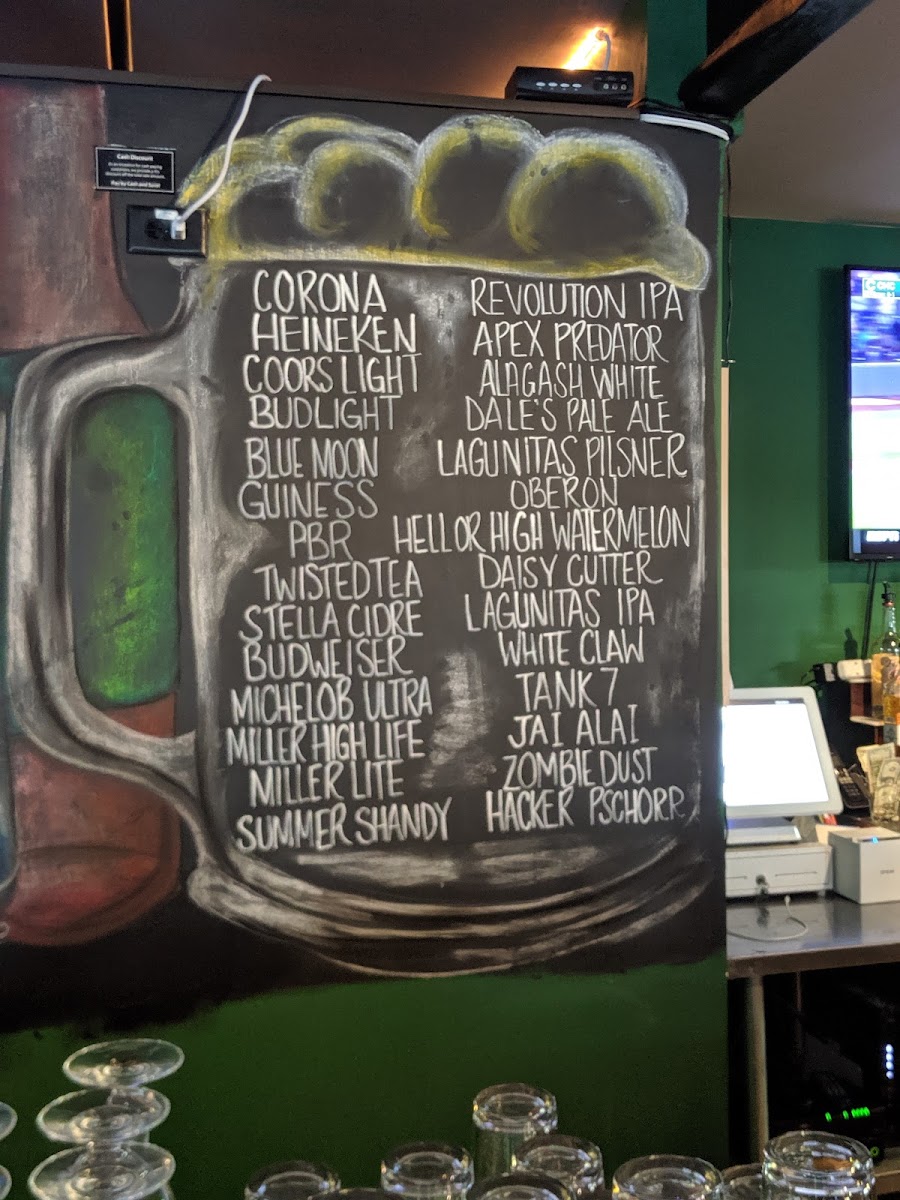 Cash Discount
Pay by Cash and Save!
CORONA
HEINEKEN
COORS LIGHT
BUDLIGHT
BLUE MOON
GUINESS
PBR
TWISTED TEA
STELLA CIDRE
BUDWEISER
MICHELOB ULTRA
MILLER HIGH LIFE
MILLER LITE
SUMMER SHANDY
REVOLUTION IPA
APEX PREDATOR
ALAGASH WHITE
DALE'S PALE ALE
LAGUNITAS PILSNER
OBERON
HELL OR HIGH WATERMELON
DAISY CUTTER
LAGUNITAS IPA
WHITE CLAW
TANK 7
JAI ALAI
ZOMBIE DUST
HACKER PSCHORR